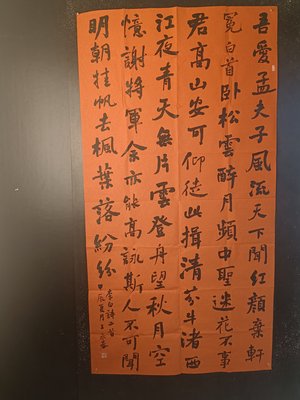 吾愛孟夫子風流天下聞紅顏棄軒
冕白首臥松雲醉月頻中聖迷花不事
君高山安可仰徒此揖清芬牛渚西
江夜青天無片雲登舟望秋月空
憶謝將軍余亦能高詠斯人不可聞
明朝挂帆去楓葉落紛紛
李白詩二首
甲辰夏月